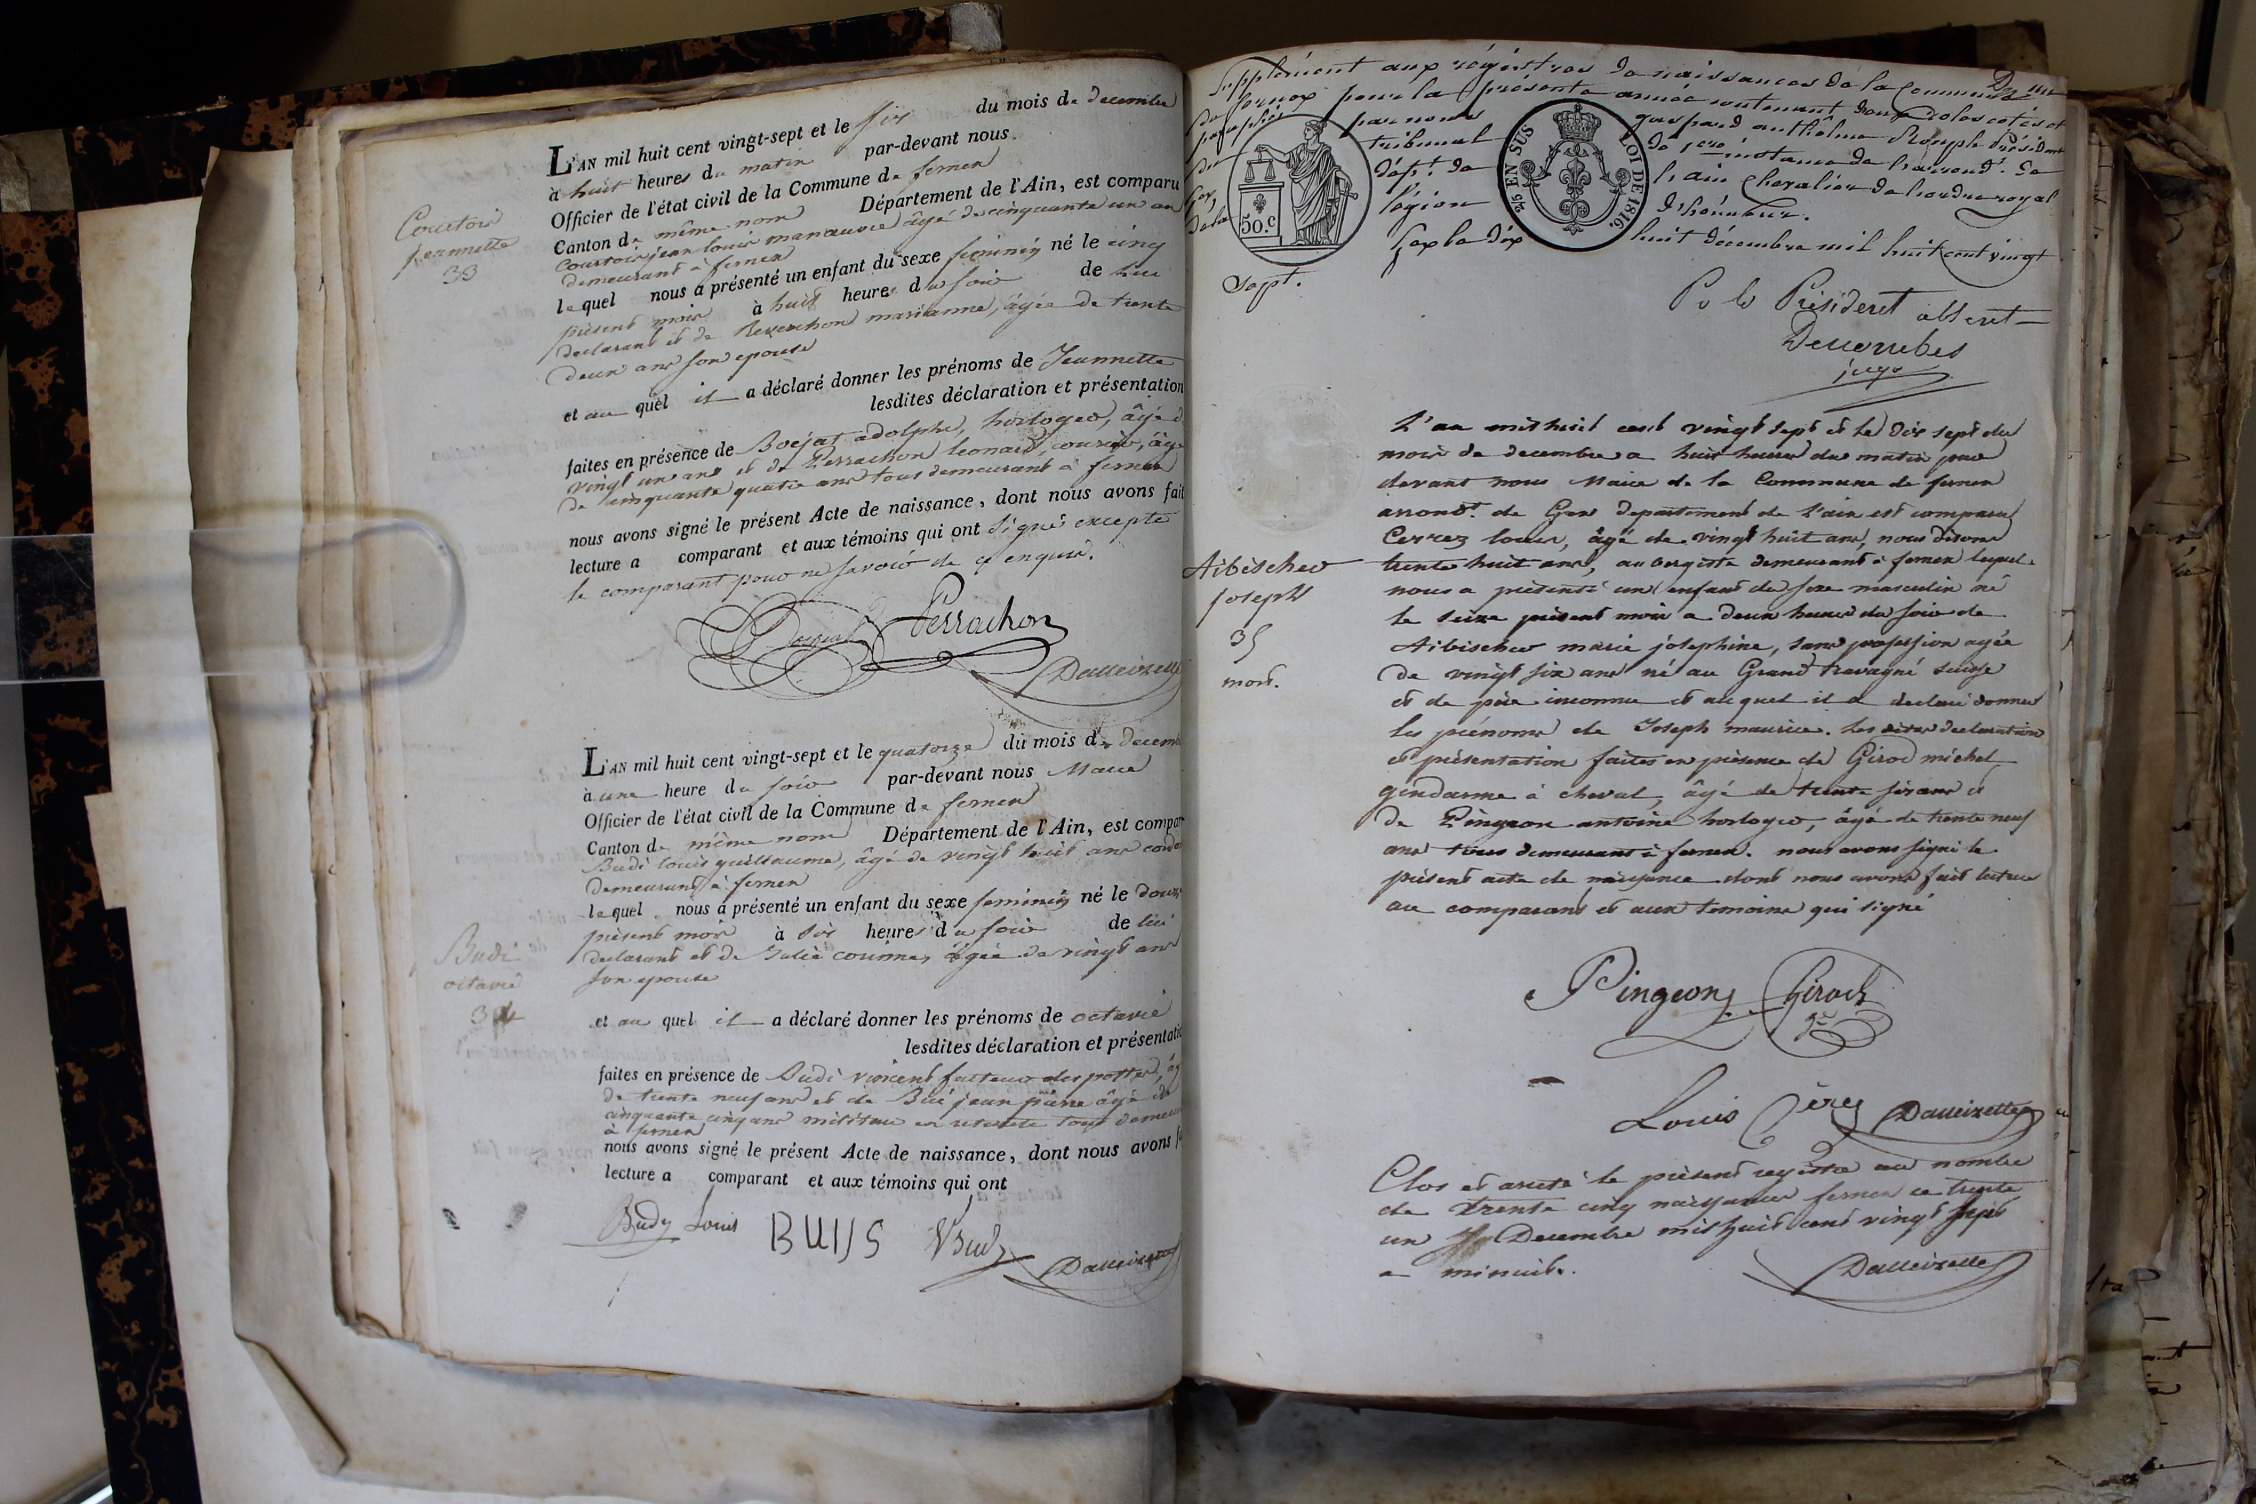 L'AN mil huit cent vingt-sept et le six du mois de decembre
à huit heures du matin par-devant nous
Officier de l'état civil de la Commune de fernex
Canton de même nom Département de l'Ain, est comparu
Courtois jean louis manœuvre âgé de cinquante un an
demeurant à fernex
lequel nous a présenté un enfant du sexe feminin né le cinq
présent mois à huit heures du soir de lui
declarant et de marianne, âgée de trente
deux ans son epouse
et au quel il a déclaré donner les prénoms de Jeannette
lesdites déclaration et présentation
faites en présence de adolphe, horloger, âgé d
vingt un ans et de Perrachon leonard, âgé
de cinquante quatre ans tous demeurant à fernex
nous avons signé le présent Acte de naissance, dont nous avons fait
lecture a comparant et aux témoins qui ont signé excepté
le comparant pour ne savoir de ce enquis.
Courtois
jeannette
33
Perrachon
Dalleizette
L'AN mil huit cent vingt-sept et le quatorze du mois de decemb
à une heure du soir par-devant nous Maire
Officier de l'état civil de la Commune de fernex
Canton de même nom Département de l'Ain, est compar
Budé louis guillaume, âgé de vingt huit ans
demeurant à fernex
lequel nous a présenté un enfant du sexe feminin né le douze
présent mois à six heures du soir de lui
declarant et de Julie âgée de vingt ans
son epouse
et au quel il a déclaré donner les prénoms de octavie
lesdites déclaration et présentatio
faites en présence de Budé vincent facteur des postes, âg
de trente neuf ans et de jean pierre âgé de
cinquante cinq ans militaire en retraite tous demeu
à fernex
nous avons signé le présent Acte de naissance, dont nous avons f
lecture a comparant et aux témoins qui ont
Budé
octavie
34
Budy Louis BUIJS Dalleizette
Supplément aux régistres de naissances de la Commune
de fernex pour la présente année contenant cotés et
paraphés par nous anthelme président
du tribunal de 1ere instance de l'arrond.t de
Gex, dép.t de l'ain Chevalier de l'ordre royal
de la légion d'honneur.
Gex le dix huit décembre mil huit cent vingt
sept.
50.C
25 EN SUS LOI DE 1816.
P. le Président absent
juge
L'an mil huit cent vingt sept et le dix sept du
mois de decembre a huit heures du matin par
devant nous Maire de la Commune de fernex
arrond.t de Gex departement de l'ain est comparu
louis, âgé de vingt huit ans, nous disons
trente huit ans, aubergiste demeurant à fernex lequel
nous a présenté un enfant de sexe masculin né
le seize présent mois a deux heures du soir de
Aibischer marie joséphine, sans profession agée
de vingt six ans né au Grand suisse
et de père inconnu et auquel il a declaré donner
les prénoms de Joseph maurice. les dites declaration
et présentation faites en présence de Girod michel
gendarme à cheval, âgé de trente six ans et
de Pingeon antoine horloger, âgé de trente neuf
ans tous demeurant à fernex. nous avons signé le
présent acte de naissance dont nous avons fait lecture
au comparant et aux temoins qui signé
Aibischer
joseph
35
mort.
Pingeon Girod
Louis Dalleizette
Clos et arreté le présent registre au nombre
de trente cinq naissances fernex ce trente
un Decembre mil huit cent vingt sept
a minuit.
Dalleizette